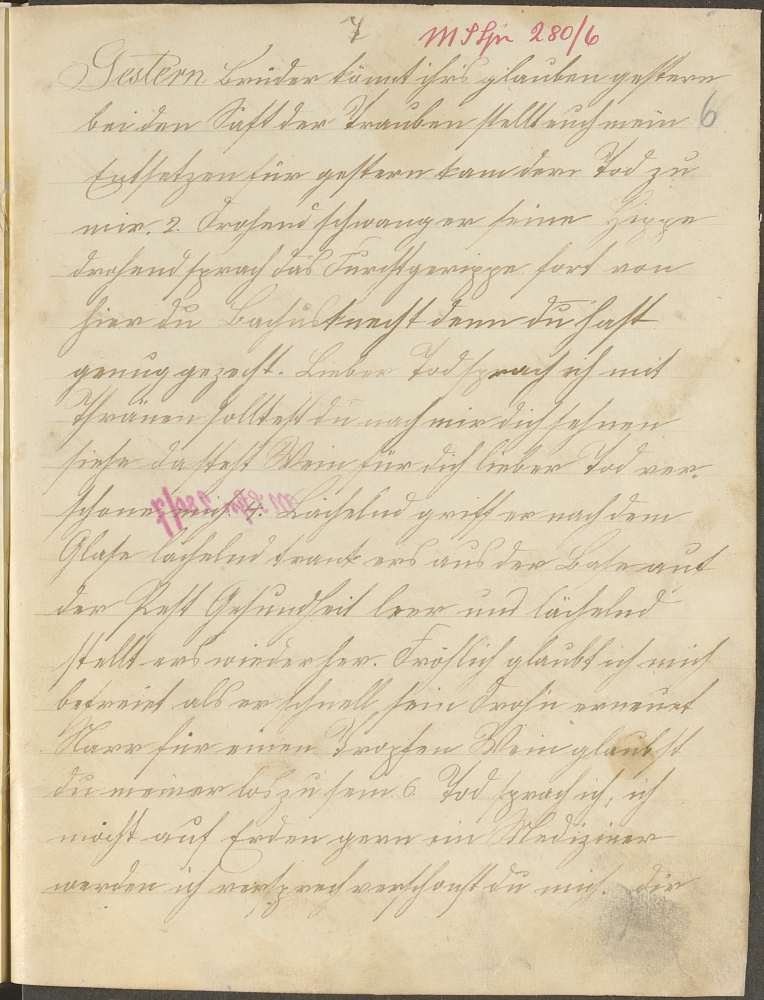 7
280/6
Gestern Brüder könnt ihrs glauben gestern
bei den Saft der Trauben stellt euch mein
6
Entsetzen für gestern kam derr Tod zu
mir. 2. Drohend schwang er seine Hippe
drohend sprach das Furchtgerippe fort von
hier du Bachusknecht denn du hast
genug gezecht. Lieber Tod sprach ich mit
Thränen solltest du nach mir dich sehnen
siehe da steht Wein für dich lieber Tod ver-
schone mich 4. Lächelnd griff er nach dem
Glase lächelnd trank ers aus der Base auf
der Pest Gesundheit leer und lächelnd
stellt ers wieder her. Fröhlich glaubt ich mich
befreiet als er schnell sein Drohn erneuet
Narr für einen Tropfen Wein glaubst
du meiner los zu sein 6. Tod sprach ich, ich
möcht auf Erden gern ein Mediziner
werden ich versprech verschonst du mich. dir